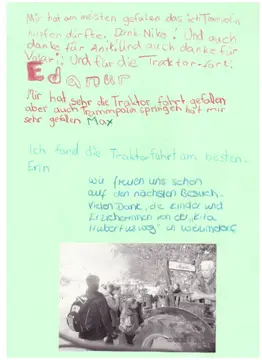 Mir hat am meisten gefallen das ich Trampolin
hüpfen durfte. Dank Niko! Und auch
danke für Anik. Und auch danke für
Und für die Traktor
Edanur
Mir hat sehr die Traktor fahrt gefallen
aber auch Trammpolin springen hat mir
sehr gefallen Max
Ich fand die Traktorfahrt am besten.
Erin
Wir freuen uns schon
auf den nächsten Besuch.
Vielen Dank, die Kinder und
Erzieherinnen von der "Kita
Hubertusweg" in